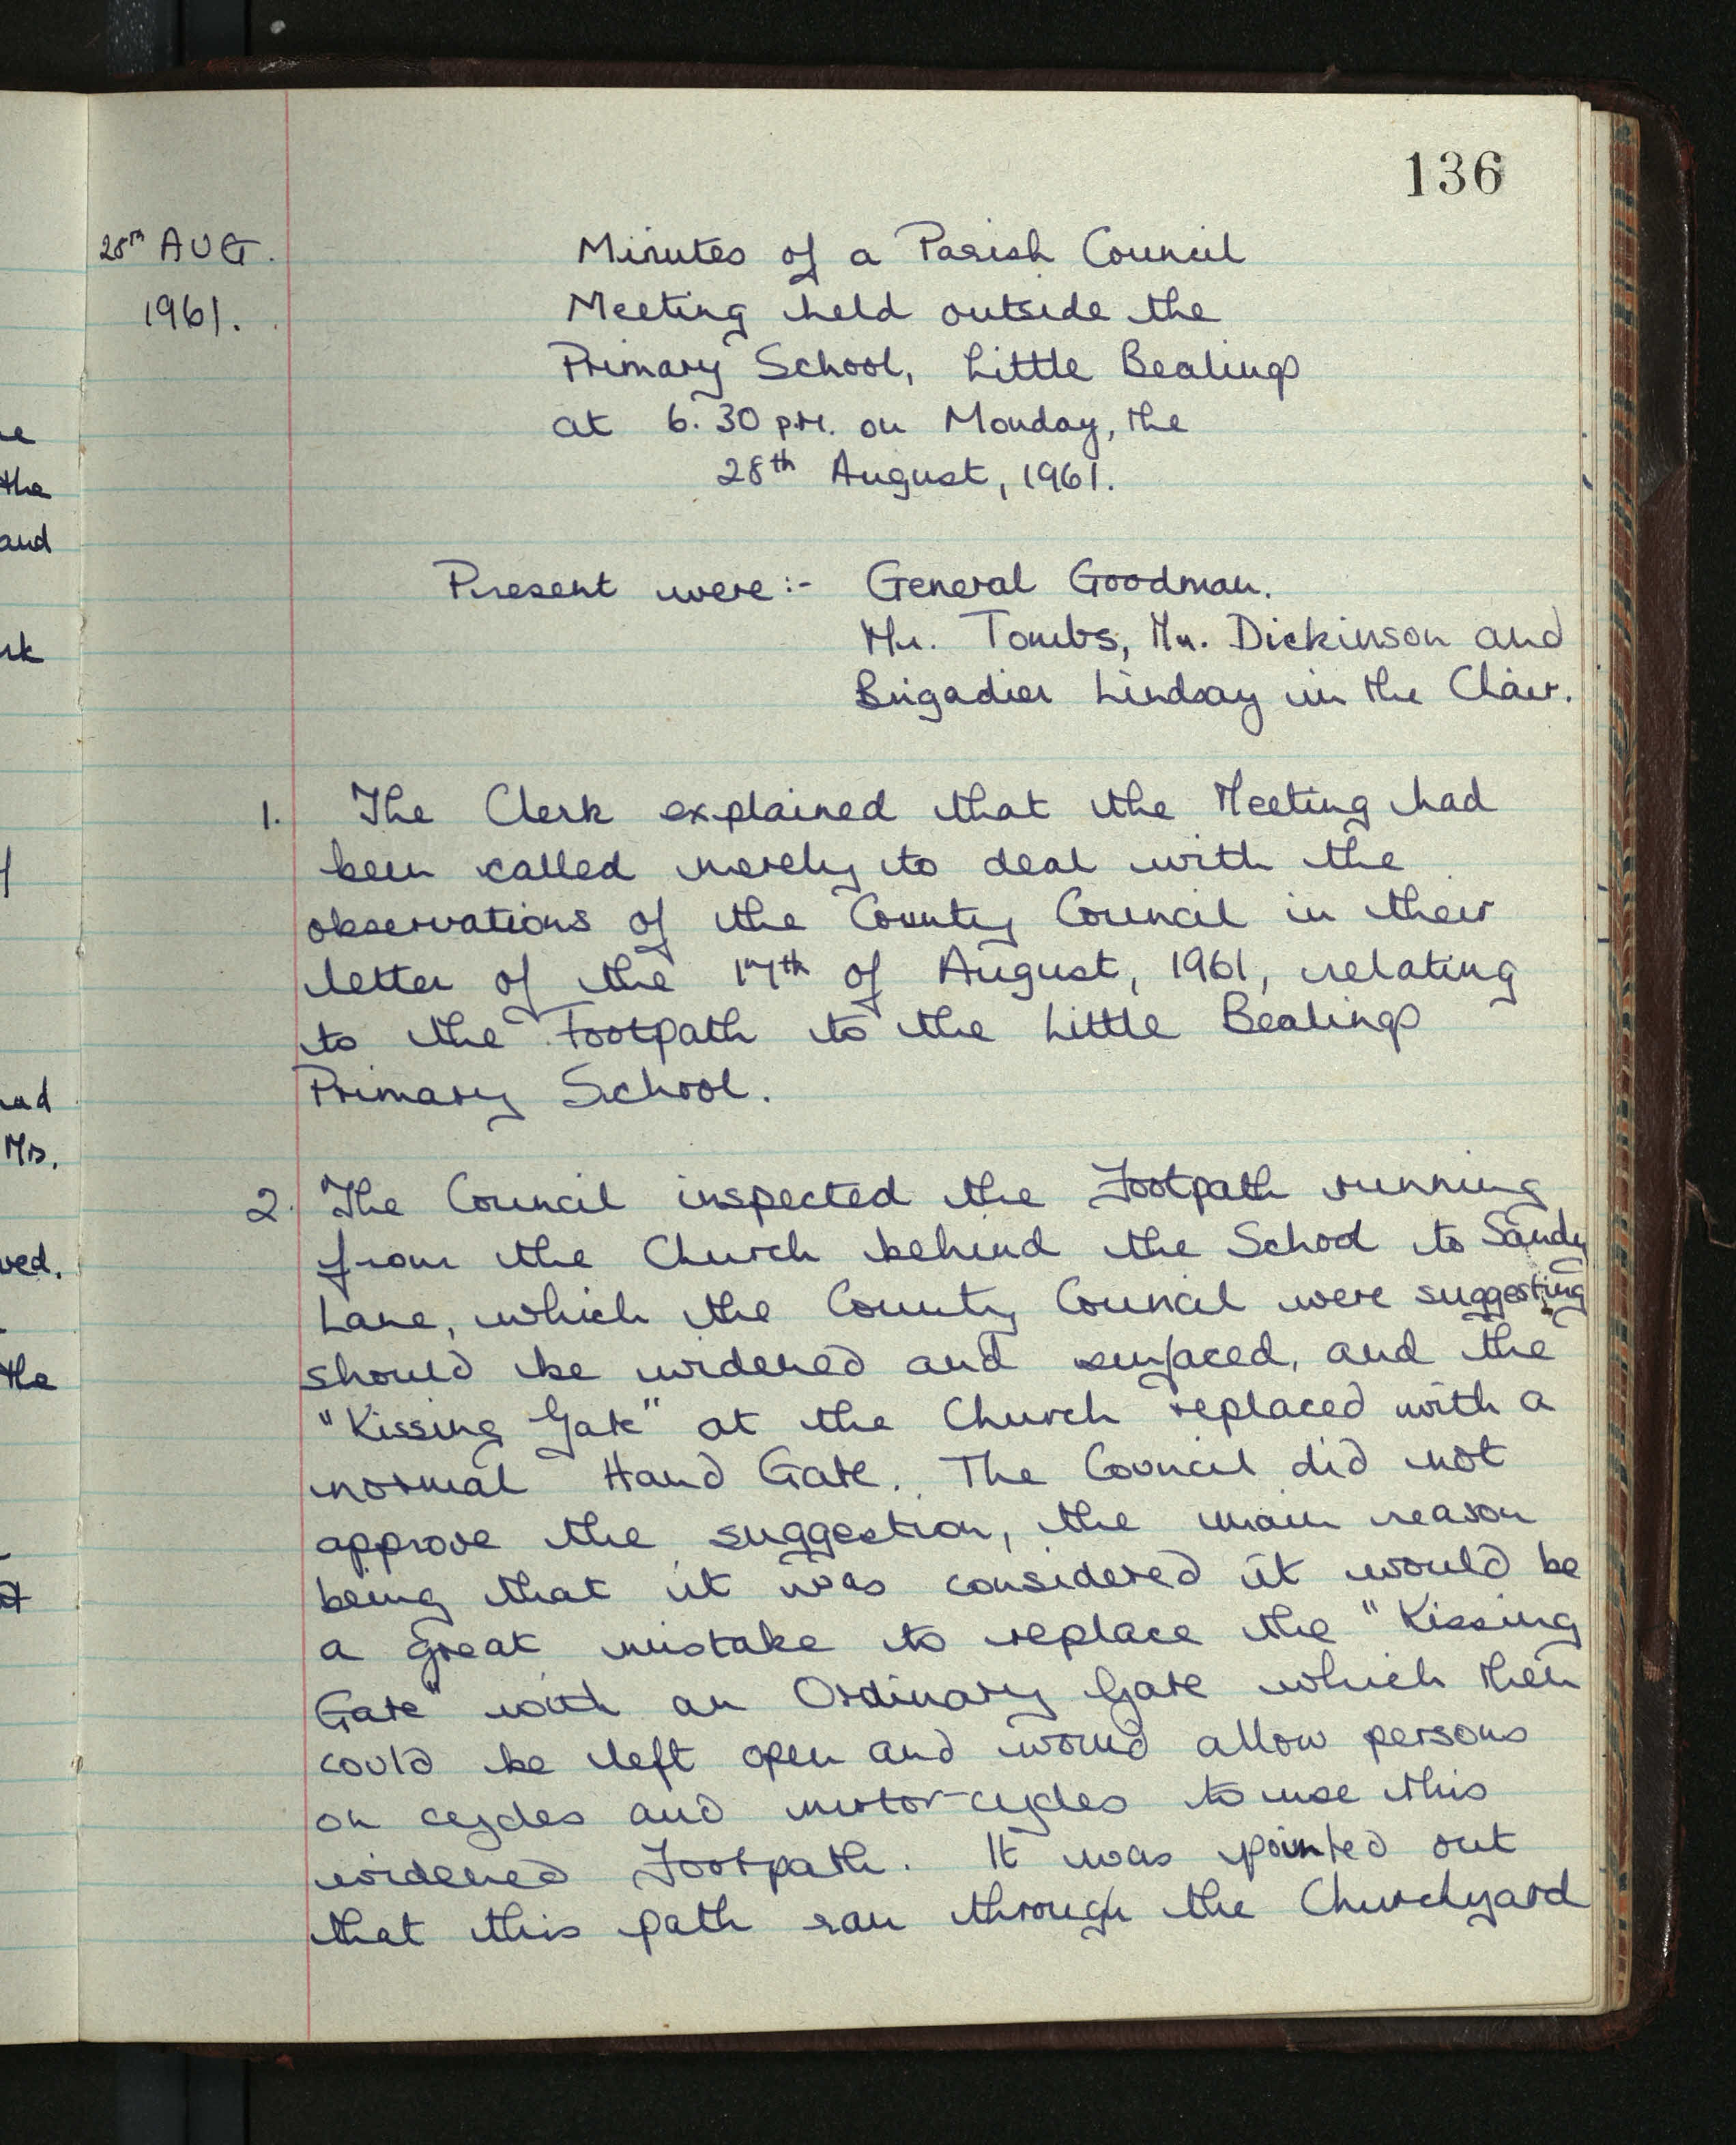 136
28th AUG.
1961.
Minutes of a Parish Council
Meeting held outside the
Primary School, Little Bealings
at 6.30 p.m. on Monday, the
28th August, 1961.
Present were:- General Goodman.
Mr. Tombs, Mr. Dickinson and
Brigadier Lindsay in the Chair.
1. The Clerk explained that the Meeting had
been called merely to deal with the
observations of the County Council in their
letter of the 17th of August, 1961, relating
to the Footpath to the Little Bealings
Primary School.
2. The Council inspected the Footpath running
from the Church behind the School to Sandy
Lane, which the County Council were suggesting
should be widened and surfaced, and the
"Kissing Gate" at the Church replaced with a
normal Hand Gate. The Council did not
approve the suggestion, the main reason
being that it was considered it would be
a great mistake to replace the "Kissing
Gate" with an Ordinary Gate which then
could be left open and would allow persons
on cycles and motor-cycles to use this
widened Footpath. It was pointed out
that this path ran through the Churchyard
the
and
Mrs.
the